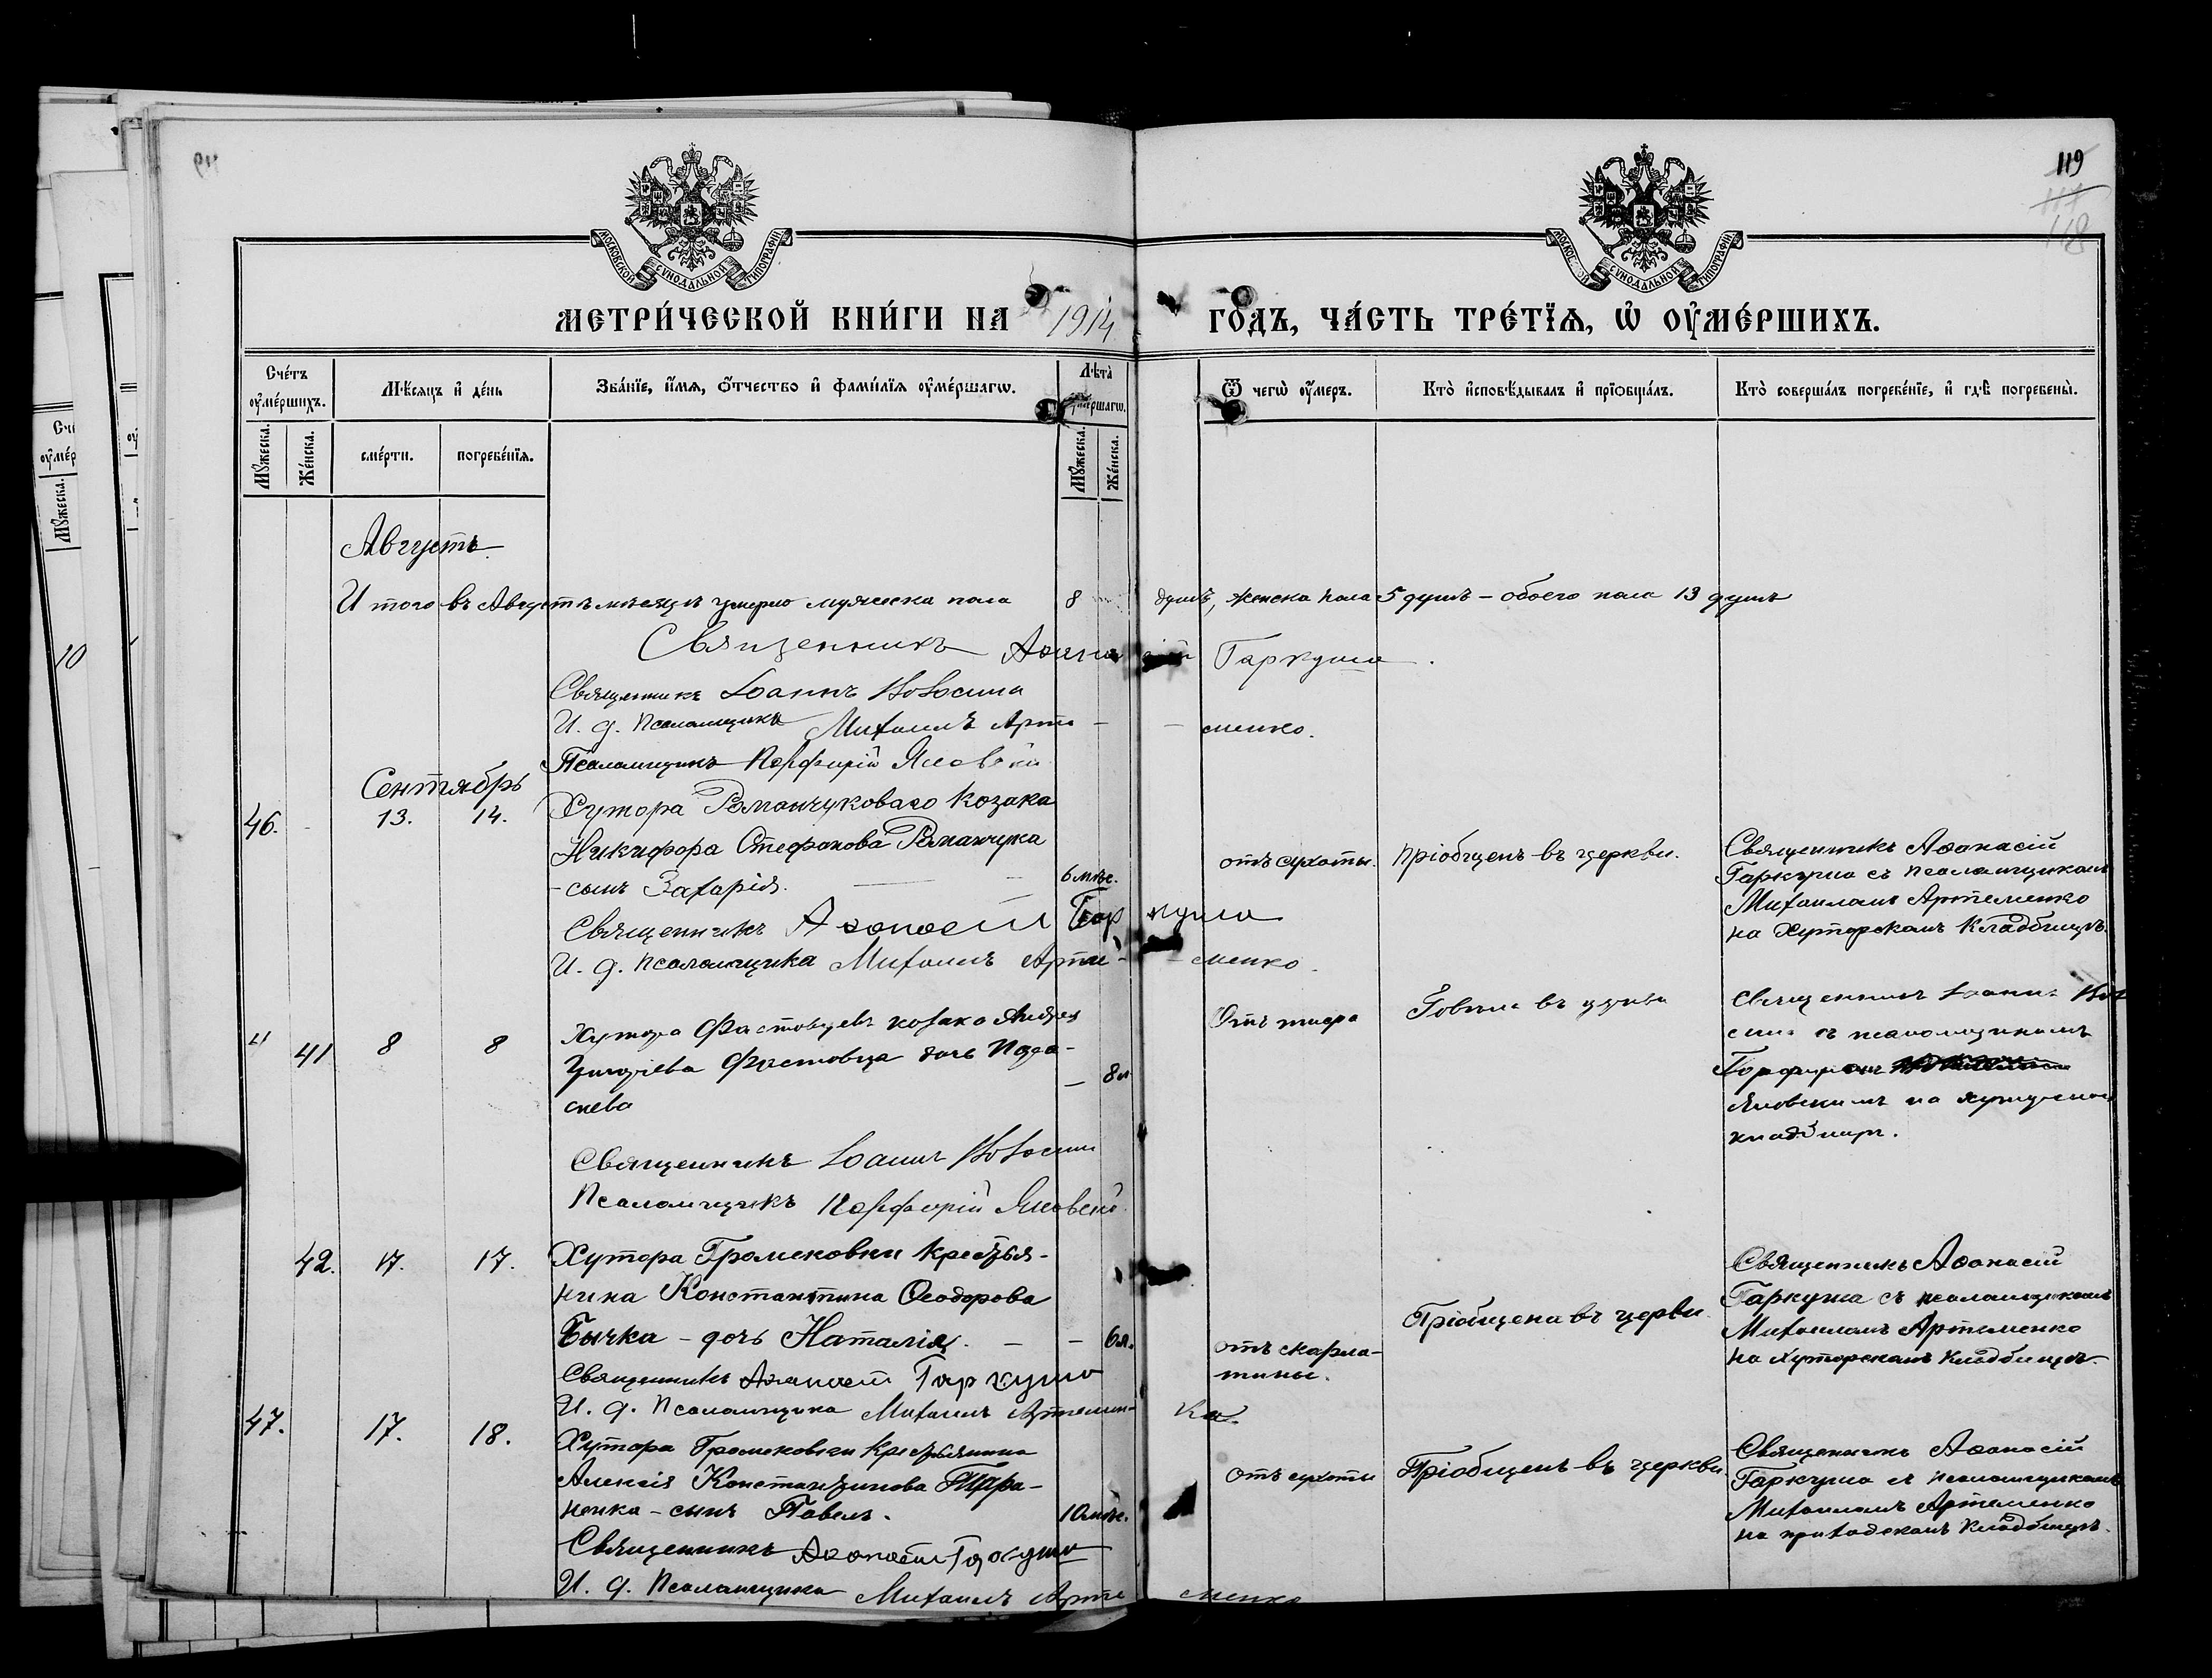 119
118
МОСКОВСКОЙ СѴНОДАЛЬНОЙ ТИПОГРАФІИ
МОСКОВСКОЙ СѴНОДАЛЬНОЙ ТИПОГРАФІИ
МЕТРИ́ЧЕСКОЙ КНИ́ГИ НА 1914 ГО́ДЪ, ЧА́СТЬ ТРЕ́ТЇѦ, Ѡ҆ ОУ҆МЕ́РШИХЪ.
Сче́тъ оу҆ме́ршихъ.
Мꙋ́жеска.
Же́нска.
Мѣ́сяцъ и҆ де́нь
сме́рти.
погребе́нїѧ.
Зва́нїе, и҆́мѧ, ѻ҆́тчество и҆ фами́лїѧ оу҆ме́ршагѡ.
Лѣта̀ оу҆ме́ршагѡ.
Мꙋ́жеска.
Же́нска.
Ѿ чегѡ̀ оу҆́меръ.
Кто̀ и҆сповѣ́дывалъ и҆ прїѡбща́лъ.
Кто̀ соверша́лъ погребе́нїе, и҆ гдѣ̀ погребены̀.
Августъ
Итого въ Августѣ мѣсяцѣ умерло мужеска пола 8 душъ, женска пола 5 душъ – обоего пола 13 душъ
Священникъ Аѳанасій Гаркуша.
Священникъ Іоаннъ
И. д. Псаломщика Михаилъ Арте- - менко.
Псаломщикъ Порфирій Яновскій
Сентябрь
46. 13. 14.
Хутора Романчуковаго козака
Никифора Стефанова Романчука
- сынъ Захарія. 6 мѣс.
отъ сухоты.
Пріобщенъ въ церкви.
Священникъ Аѳанасій
Гаркуша съ псаломщикомъ
Михаиломъ Артеменко
на Хуторскомъ Кладбищѣ.
Священникъ Аѳанасій Гаркуша
И. д. псаломщика Михаилъ Арте- - менко.
41 8 8
Хутора Фастовцевъ козака Андрея
Григоріева Фастовца дочь Пара-
скева – 8 л
Отъ тифа
Говѣла въ церкви
Священникъ Іоаннъ
съ псаломщикомъ
Порфиріемъ
Яновскимъ на хуторскомъ
кладбищѣ.
Священникъ Іоаннъ
Псаломщикъ Порфирій Яновскій
42. 17. 17.
Хутора Громековки крестья-
нина Константина Ѳеодорова
Бычка – дочь Наталія. – – 6 л.
отъ скарла-
тины.
Пріобщена въ церкви.
Священникъ Аѳанасій
Гаркуша съ псаломщикомъ
Михаиломъ Артеменко
на Хуторскомъ кладбищѣ.
Священникъ Аѳанасій Гаркуша
И. д. Псаломщика Михаилъ Артемен- ко.
47. 17. 18.
Хутора Громековки крестьянина
Алексія Константинова
ненка – сынъ Павелъ. 10 мѣс.
Отъ сухоты
Пріобщенъ въ церкви.
Священникъ Аѳанасій
Гаркуша съ псаломщикомъ
Михаиломъ Артеменко
на приходскомъ кладбищѣ.
Священникъ Аѳанасій Гаркуша
И. д. Псаломщика Михаилъ Арте менко